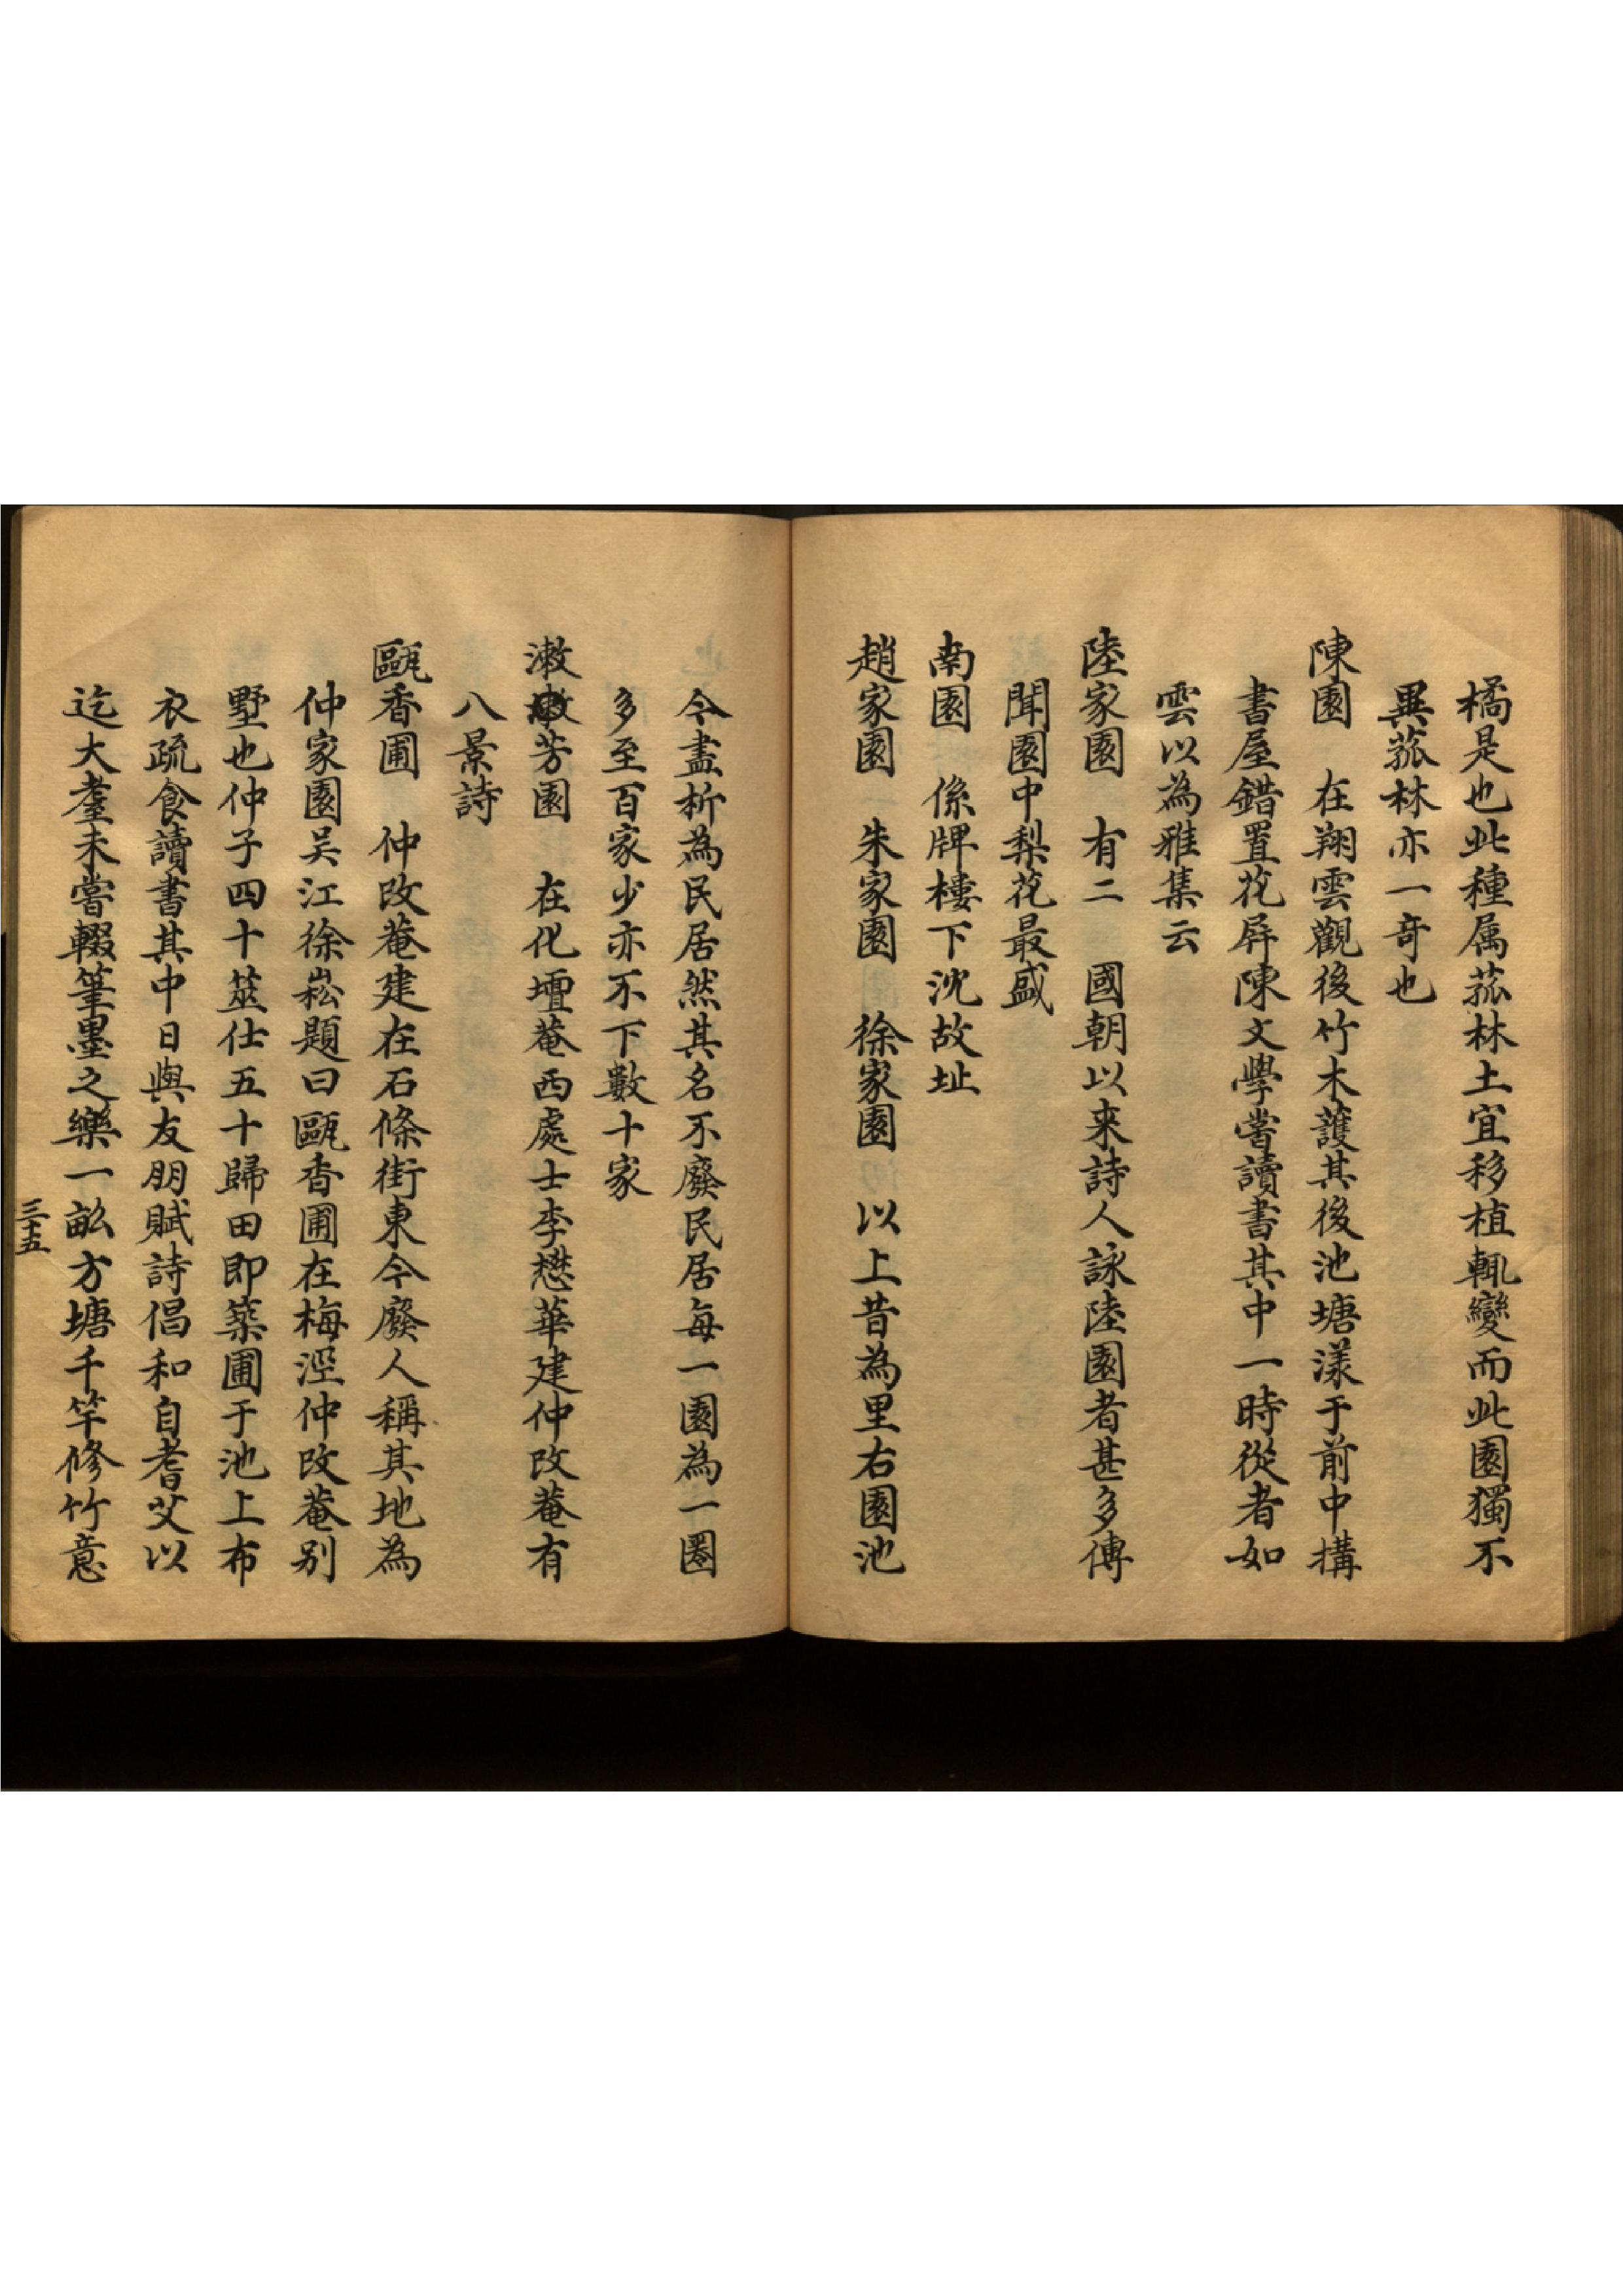 橘是也此種属菰林土宜移植輒變而此園獨不
異菰林亦一奇也
陳園　在翔雲觀後竹木護其後池塘漾于前中搆
書屋錯置花屏陳文學嘗讀書其中一時從者如
雲以為雅集云
陸家園　有二　國朝以来詩人詠陸園者甚多傳
聞園中梨花最盛
南園　係牌樓下沈故址
趙家園　朱家園　徐家園　以上昔為里右園池
今盡析為民居然其名不廢民居每一園為一圏
多至百家少亦不下數十家
漱芳園　在化壇菴西處士李懋華建仲改菴有
八景詩
甌香圃　仲改菴建在石條街東今廢人稱其地為
仲家園吴江徐崧題曰甌香圃在梅涇仲改菴别
墅也仲子四十筮仕五十歸田即築圃于池上布
衣疏食讀書其中日與友朋賦詩倡和自耆艾以
迄大耋未嘗輟筆墨之樂一畝方塘千竿修竹意
三十五